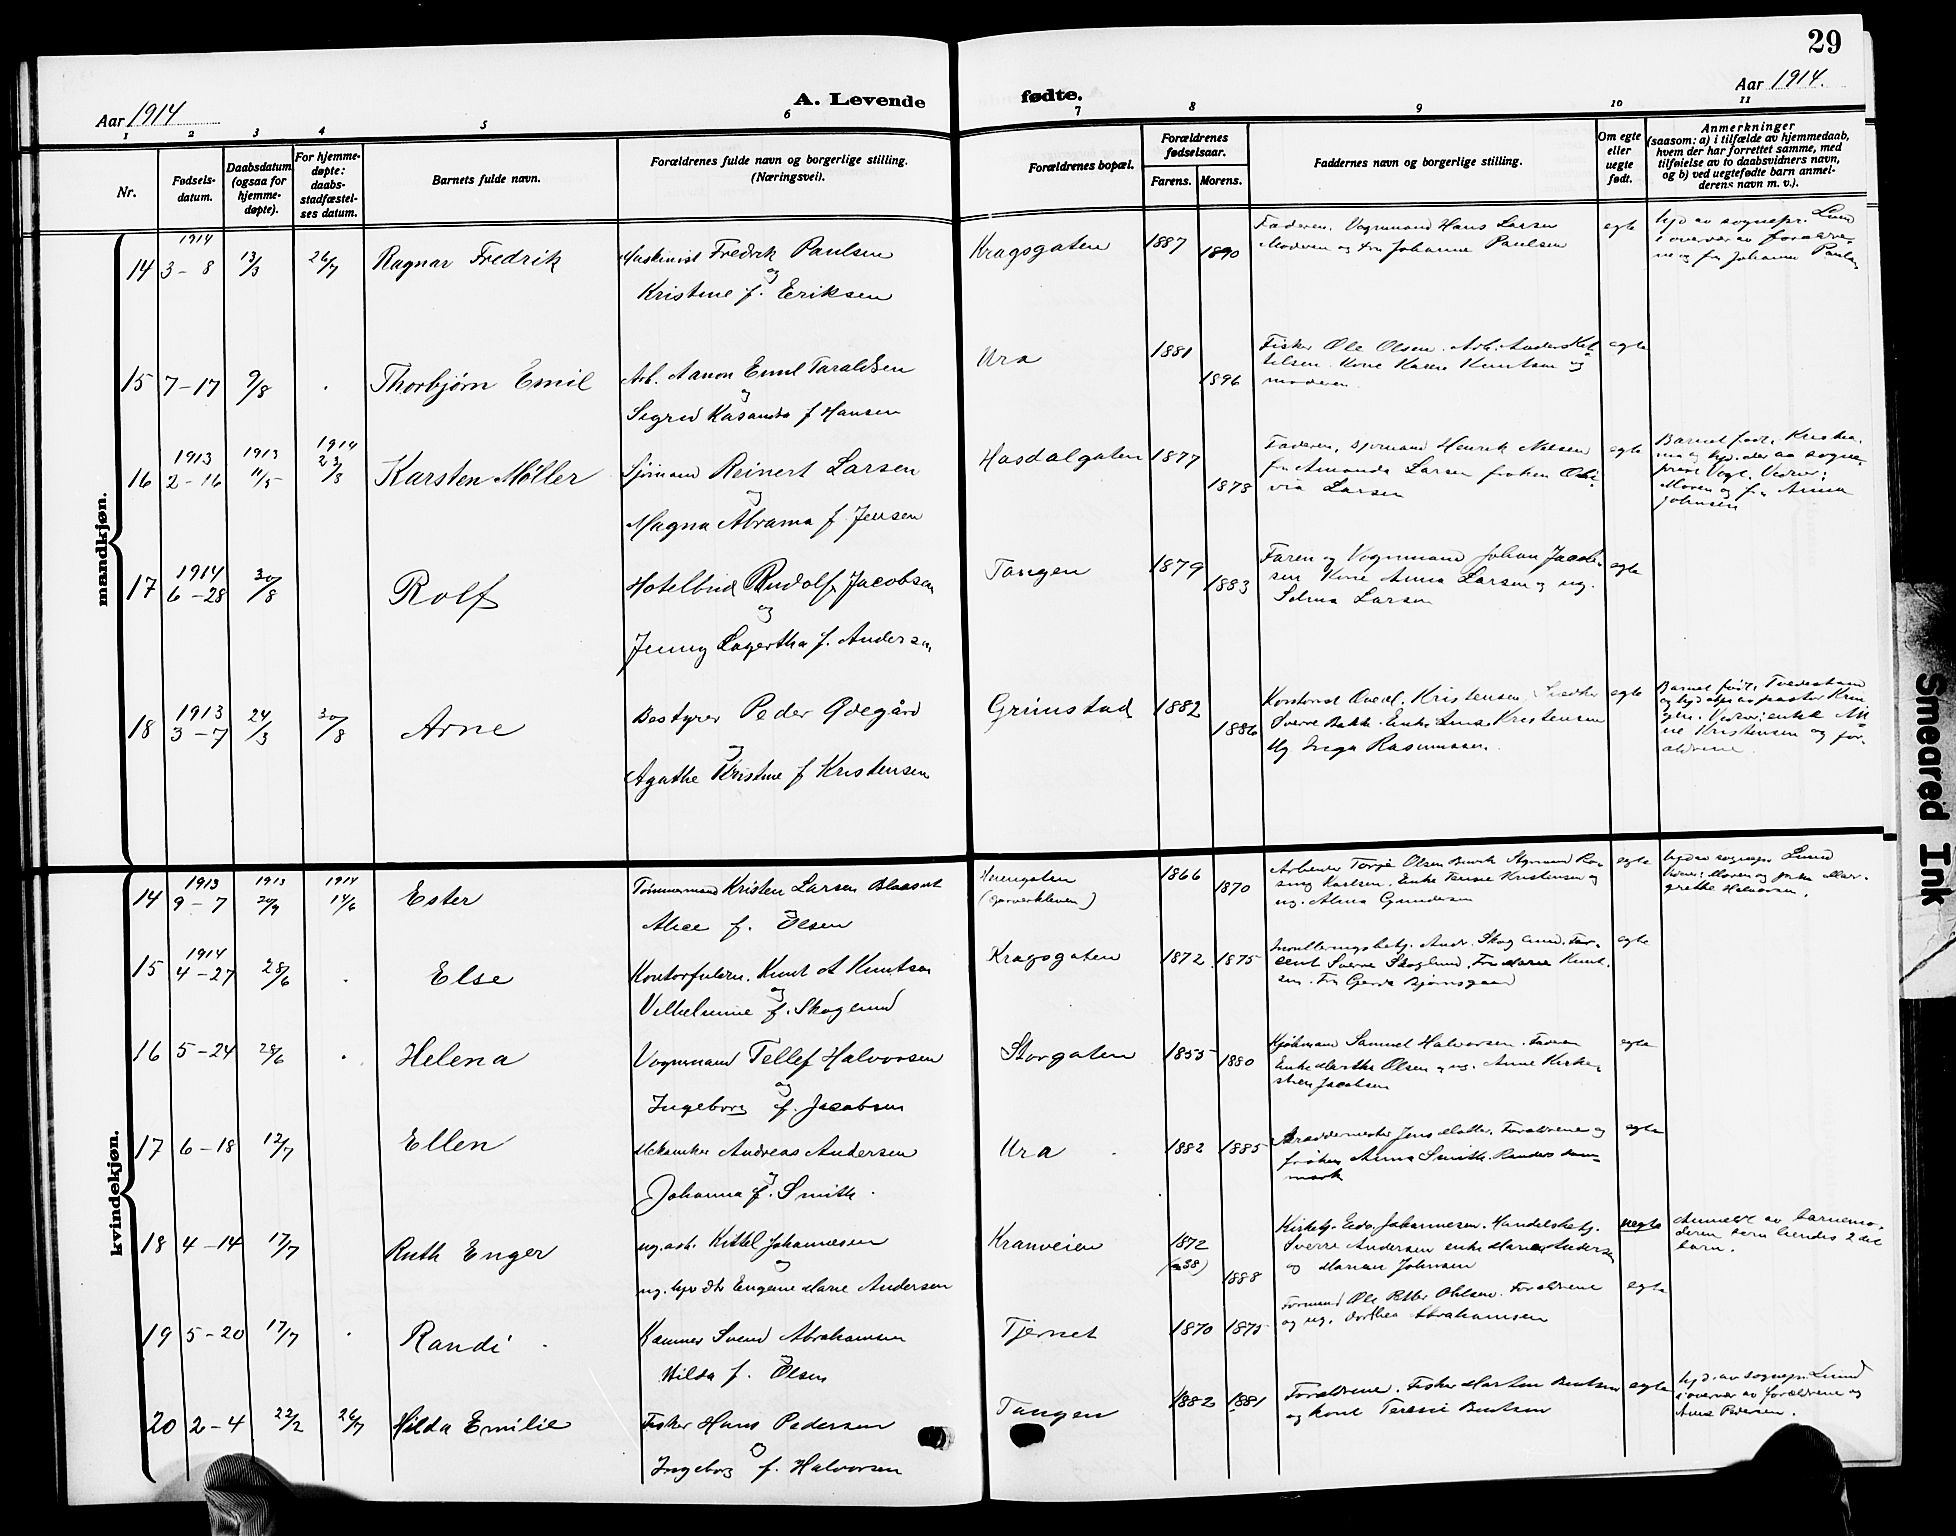 29
Aar 1914
A. Levende
fødte.
Aar 1914.
1 2 3 4 5 6 7 8 9 10 11
Nr.
Fødsels-
datum.
Daabsdatum
(ogsaa for
hjemme-
døpte).
For hjemme-
døpte:
daabs-
stadfæstel-
ses datum.
Barnets fulde navn.
Forældrenes fulde navn og borgerlige stilling.
(Næringsvei).
Forældrenes bopæl.
Forældrenes
fødselsaar.
Farens. Morens.
Faddernes navn og borgerlige stilling.
Om egte
eller
uegte
født.
Anmerkninger
(saasom: a) i tilfælde av hjemmedaab,
hvem der har forrettet samme, med
tilføielse av to daabsvidners navn,
og b) ved uegtefødte barn anmel-
derens navn m. v.).
mandkjøn.
1914
14 3-8 13/3 26/7 Ragnar Fredrik
Maskinist Fredrik Paulsen
og
Kristine f. Eriksen
Kragsgaten 1887 1890
Faderen. Vognmand Hans Larsen
Moderen og fru Johanne Paulsen
egte
hjd av sognepr. Lund
i overvær av forældre-
ne og fru Johanne Paulsen
15 7-17 9/8 . Thorbjørn Emil
Arb. Aanon Emil Taraldsen
og
Sigrid Kasanda f Hansen
Ura 1881 1896
Fisker Ole Olsen. Arb. Anders Ket-
telsen. Kone Karen Knutsen og
moderen.
egte
1913 1913 1914
16 2-16 11/5 23/3 Karsten Møller
Sjømand Reinert Larsen
og
Magna Abrama f. Jensen
Hasdalgaten 1877 1878
Faderen, sjømand Henrik Nilsen
fru Amanda Larsen frøken Oli-
via Larsen
egte
Barnet født i Kristia-
nia og hjd. der av sogne-
prest Vogt. Vidner:
Moren og fru Anna
Johnsen
1914
17 6-28 30/8 Rolf
Hotelbud Rudolf Jacobsen
og
Jenny Lagertha f. Andersen
Tangen 1879 1883
Faren og Vognmand Johan Jacob-
sen Kone Anna Larsen og ug.
Selma Larsen
egte
1913
18 3-7 24/3 30/8 Arne
Bestyrer Peder Ødegård
og
Agathe Kristine f Kristensen
Grimstad 1882 1886
Kristensen
Sverre Bakk. Enke Kristensen
Ug Inga Rasmussen.
egte
Barnet født i Tvedestrand
pastor
Vidner: enke
Kristensen og for-
ældrene.
kvindekjøn.
1913 1913 1914
14 9-7 20/9 14/6 Ester
Tømmermand Kristen Larsen Blaasut
og
Alice f. Olsen
(Garverkleven)
1866 1870
Arbeider Terje Olsen Styrmand Ras-
mus Karlsen. Enke Kristensen og
ug. Alma Gundersen
egte
hjd av sognepr Lund
Vidner: Moren og Mar-
grethe Halvorsen.
1914
15 4-27 28/6 . Else
Kontorfuldm. Knut A Knutsen
og
Vilhelmine f. Skoglund
Kragsgaten 1872 1875
Andr. Skoglund.
Sverre Skoglund. Fru Marie Knut-
sen. Fru Gerda Bjørnsgaard
egte
16 5-24 28/6 . Helena
Vognmand Tellef Halvorsen
og
Ingeborg f. Jacobsen
Storgaten 1855 1880
Kjøbmand Samuel Halvorsen. Faderen
Enke Marthe Olsen og ug. Anne Kirke-
stien Jacobsen
egte
17 6-18 12/7 . Ellen
Mekaniker Andreas Andersen
og
Johanna f. Smith.
Ura 1882 1885
Jens Møller. Forældrene og
frøken Anna Smith. Randers Dan-
mark
egte
18 4-14 17/7 Ruth Enger
ug. arb. Kittel Johannesen
og
ug. Eugenie Marie Andersen
Kranveien 1872
(38) 1888
Kirketj. Edv. Johannesen. Handelsbetj.
Sverre Andersen enke Maren Andersen
og Marian Johnsen
uegte
Anmeldt av barnemo-
deren som hendes 2det
barn.
19 5-20 17/7 . Randi
Svend Abrahamsen
og
Hilda f. Olsen
Tjernet 1870 1875
Formand Ole Petter Ohlsen. Forældrene
og ug. Dorthea Abrahamsen
egte
20 2-4 22/2 26/7 Hilda Emilie
Fisker Hans Pedersen
og
Ingeborg f. Halvorsen
Tangen 1882 1881
Forældrene. Fisker Morten Bentsen
og kone Teresie Bentsen
egte
hjd. av sognepr. Lund
i overvær av forældrene og
Pedersen.
Smeared Ink